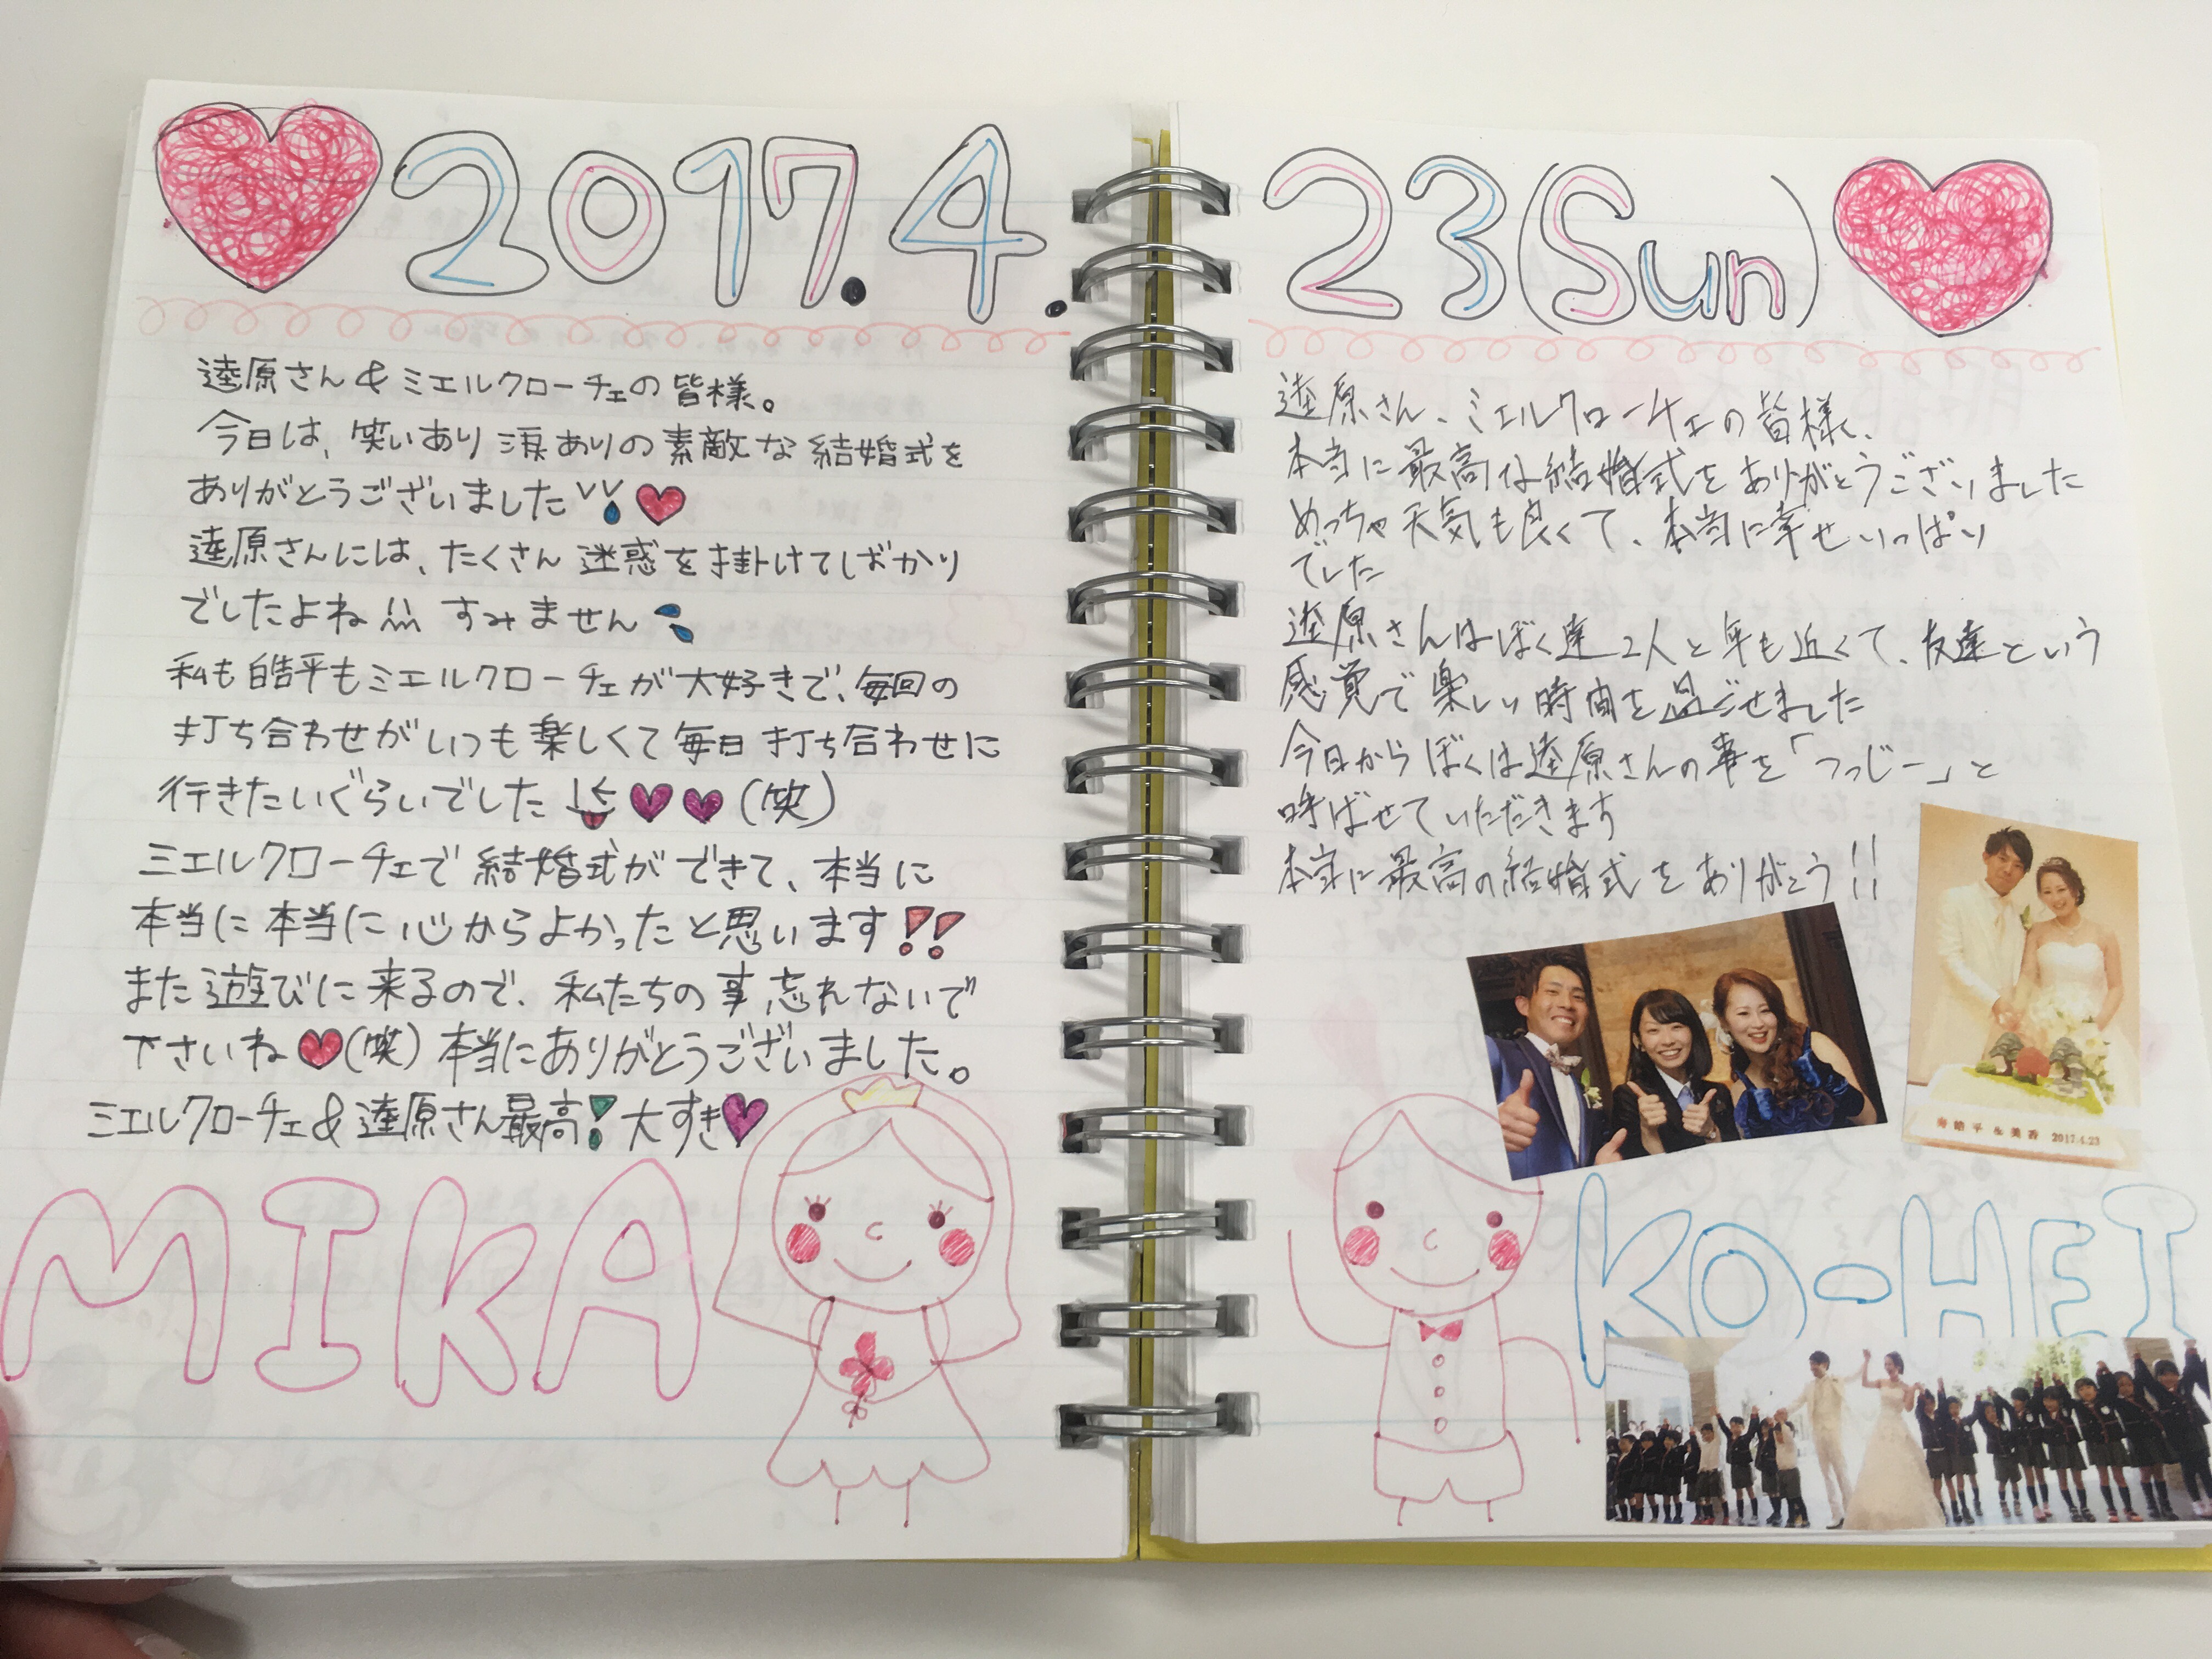 2017.4.
逵原さん&ミエルクローチェの皆様。
今日は、笑いあり涙ありの素敵な結婚式を
ありがとうございました
逵原さんには、たくさん迷惑を掛けてばかり
でしたよね すみません
私も皓平もミエルクローチェが大好きで、毎回の
打ち合わせがいつも楽しくて毎日打ち合わせに
行きたいぐらいでした (笑)
ミエルクローチェで結婚式ができて、本当に
本当に本当に心からよかったと思います!!
また遊びに来るので、私たちの事忘れないで
下さいね (笑) 本当にありがとうございました。
ミエルクローチェ&逵原さん最高! 大すき
MIKA
23(Sun)
逵原さん、ミエルクローチェの皆様、
本当に最高な結婚式をありがとうございました
めっちゃ天気も良くて、本当に幸せいっぱい
でした
逵原さんはぼく達2人と年も近くて、友達という
感覚で楽しい時間を過ごせました
今日からぼくは逵原さんの事を「つっじー」と
呼ばせていただきます
本当に最高の結婚式をありがとう!!
皓平&美香 2017.4.23
KO-HEI